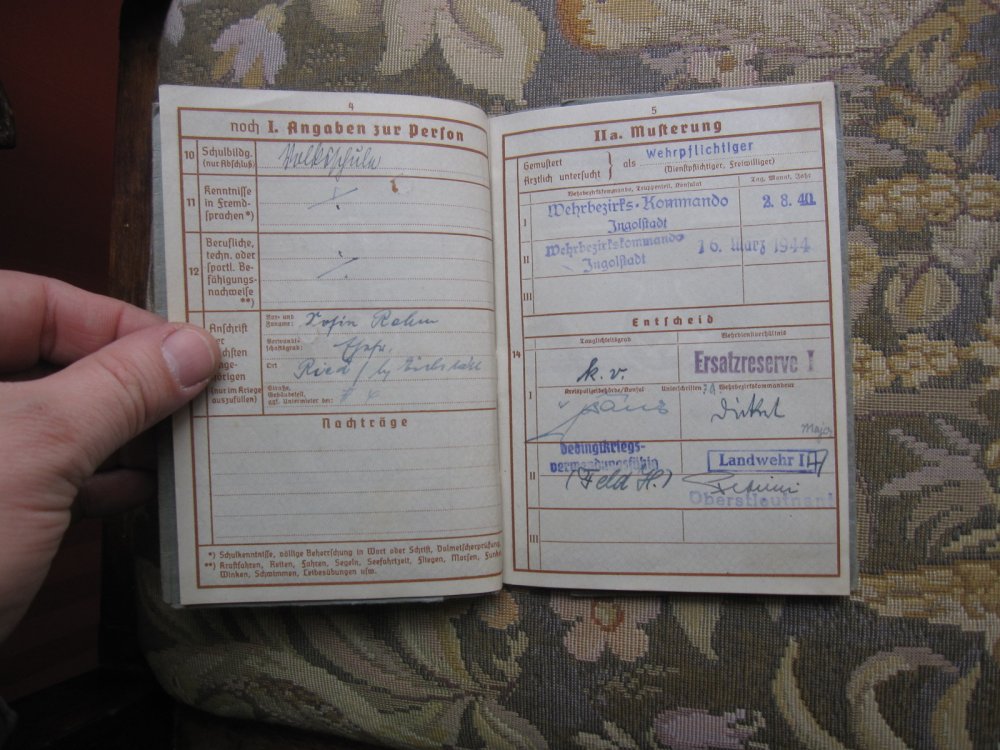 4
noch I. Angaben zur Person
10 Schulbildg. (nur Abschluß) Volksschule
11 Kenntnisse in Fremdsprachen*)
12 Berufliche, techn. oder sportl. Befähigungsnachweise **)
Anschrift
Vor- und Zuname: Rahm
Verwandtschaftsgrad: Ehefr.
Ort Ried
Straße, Gebäudeteil, ggf. Untermieter bei:
(nur im Kriege auszufüllen)
Nachträge
*) Schulkenntnisse, völlige Beherrschung in Wort oder Schrift, Dolmetscherprüfung
**) Kraftfahren, Reiten, Fahren, Segeln, Seefahrtzeit, Fliegen, Morsen, Funke
Winken, Schwimmen, Leibesübungen usw.
5
IIa. Musterung
Gemustert
Ärztlich untersucht } als Wehrpflichtiger
(Dienstpflichtiger, Freiwilliger)
Wehrbezirkskommando, Truppenteil, Konsulat Tag, Monat, Jahr
I Wehrbezirks-Kommando 2. 8. 40
Ingolstadt
II Wehrbezirkskommando 16. März 1944
Ingolstadt
III
Entscheid
14
Tauglichkeitsgrad Wehrdienstverhältnis
k. v. Ersatzreserve I
I Kreispolizeibehörde/Konsul Unterschriften Wehrbezirkskommandeur
Major
II bedingtkriegs-
verwendungsfähig Landwehr I
(Feld H.)
Oberstleutnant
III